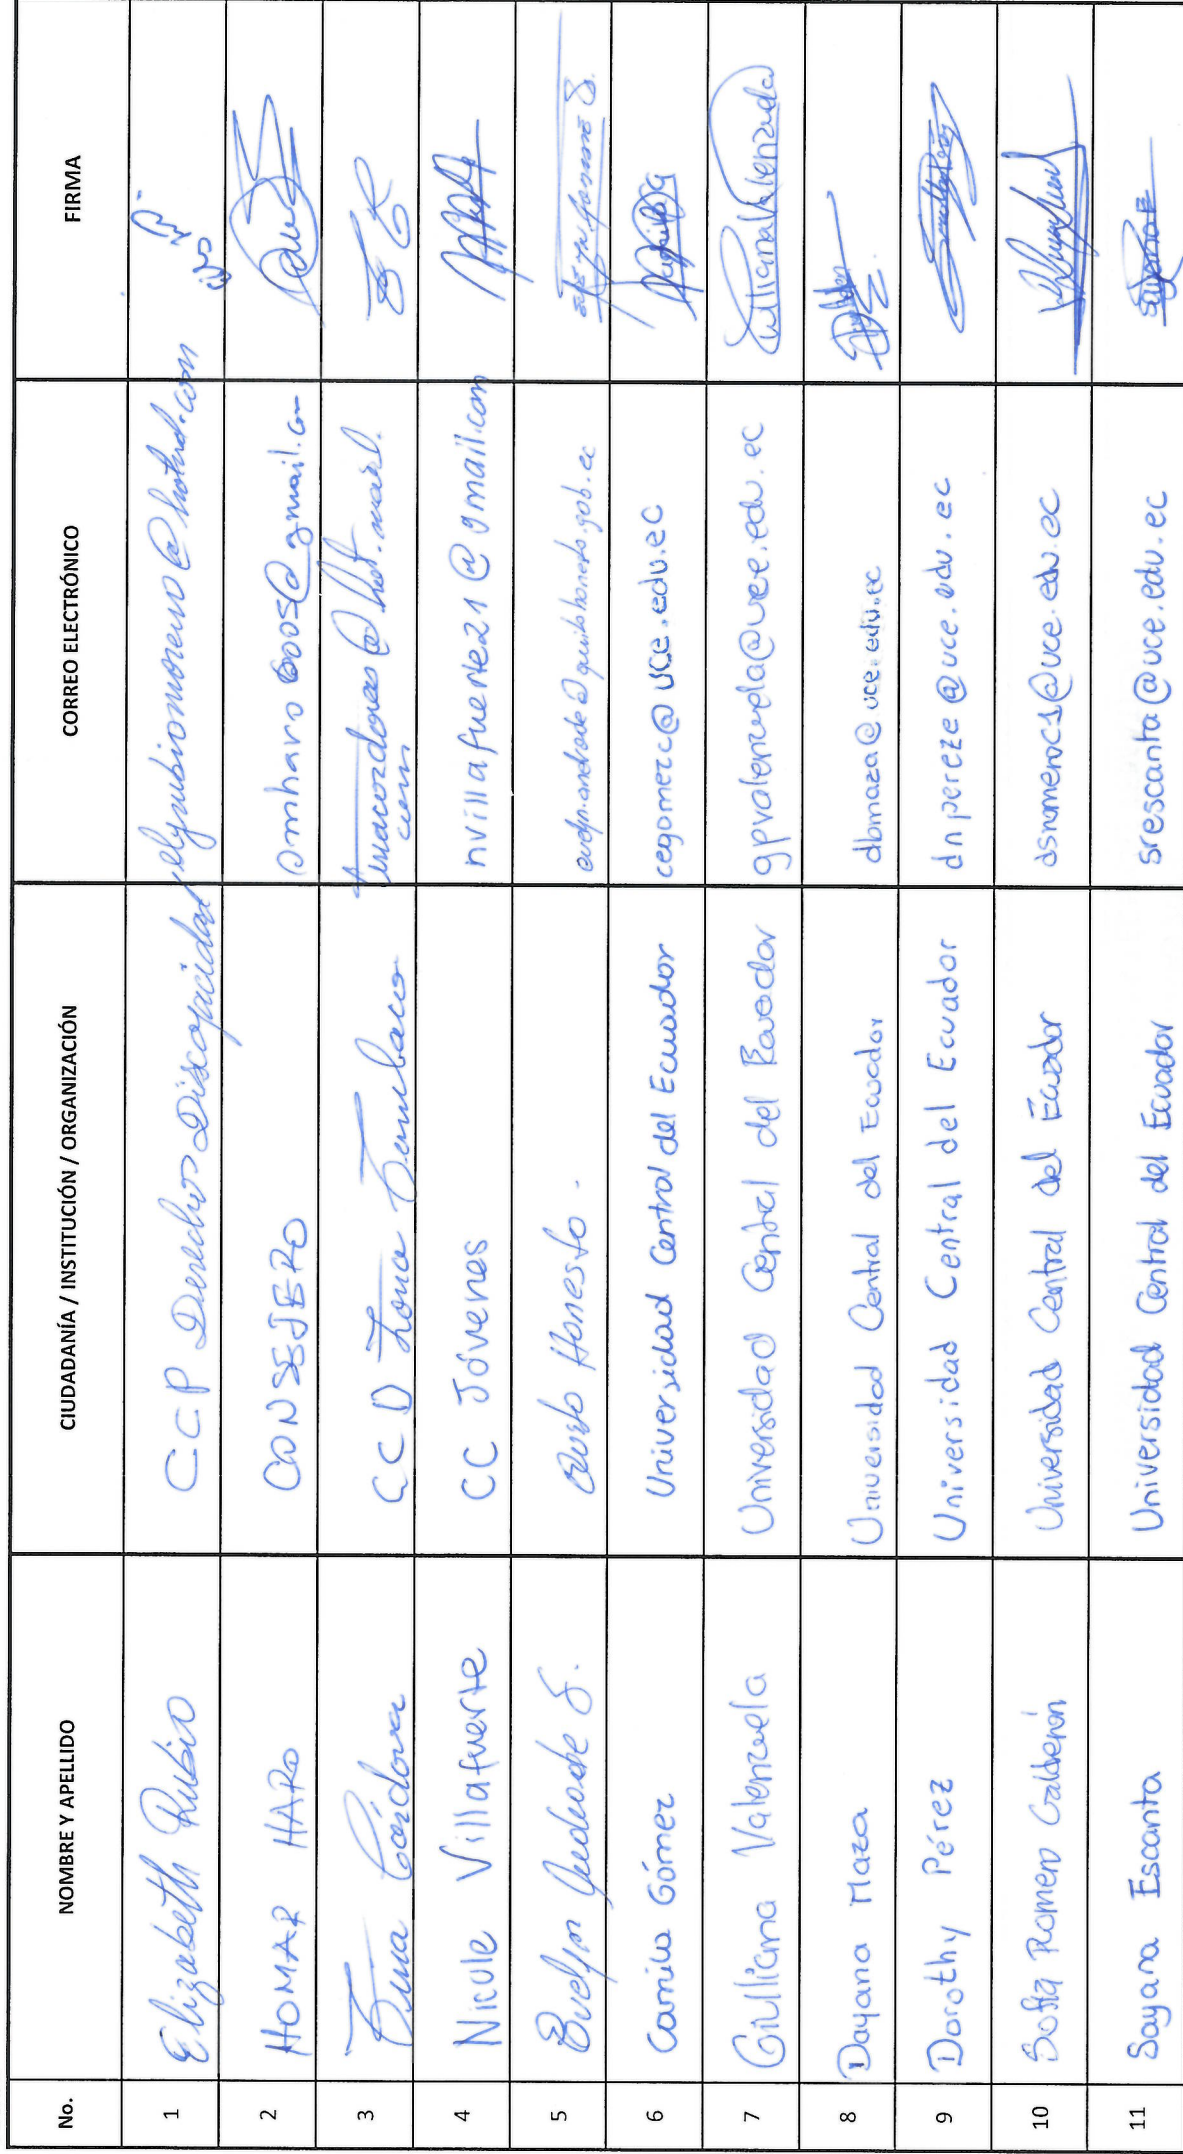 No. NOMBRE Y APELLIDO CIUDADANÍA / INSTITUCIÓN / ORGANIZACIÓN CORREO ELECTRÓNICO FIRMA
1 Elizabeth Rubio C.C.P Derechos Discapacidad elyrubiomoreno@hotmail.com
2 HOMAR HARO CONSEJERO
3 Córdova C C D Zona Tumbaco
4 Nicole Villafuerte CC Jóvenes nvillafuerte21@gmail.com
5 Evelyn Andrade G. Quito Honesto. evelyn.andrade@quitohonesto.gob.ec
6 Camila Gómez Universidad Central del Ecuador cegomezc@uce.edu.ec
7 Giulliana Valenzuela Universidad Central del Ecuador gpvalenzuela@uce.edu.ec GiullianaValenzuela
8 Dayana Maza Universidad Central del Ecuador dbmaza@uce.edu.ec
9 Dorothy Pérez Universidad Central del Ecuador dnpereze@uce.edu.ec
10 Sofía Romero Calderón Universidad Central del Ecuador dsromeroc1@uce.edu.ec
11 Sayana Escanta Universidad Central del Ecuador srescanta@uce.edu.ec